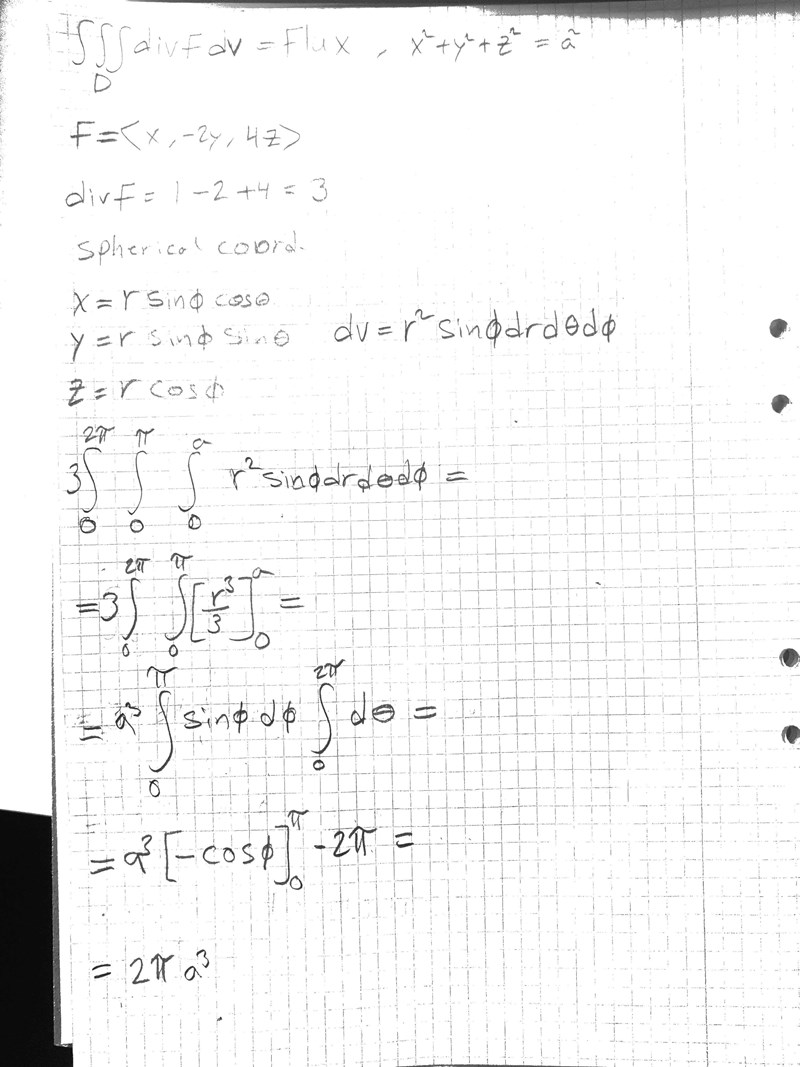 ∭_D divFdv = Flux , x²+y²+z² = a²
F=<x,-2y,4z>
divF= 1-2+4 = 3
Spherical coord.
x=r sinϕ cosθ
y=r sinϕ sinθ dv=r² sinϕdrdθdϕ
z=r cosϕ
3∫_0^2π ∫_0^π ∫_0^a r² sinϕdrdθdϕ =
=3∫_0^2π ∫_0^π [r³/3]_0^a =
= a³ ∫_0^π sinϕ dϕ ∫_0^2π dθ =
= a³ [-cosϕ]_0^π -2π =
= 2π a³